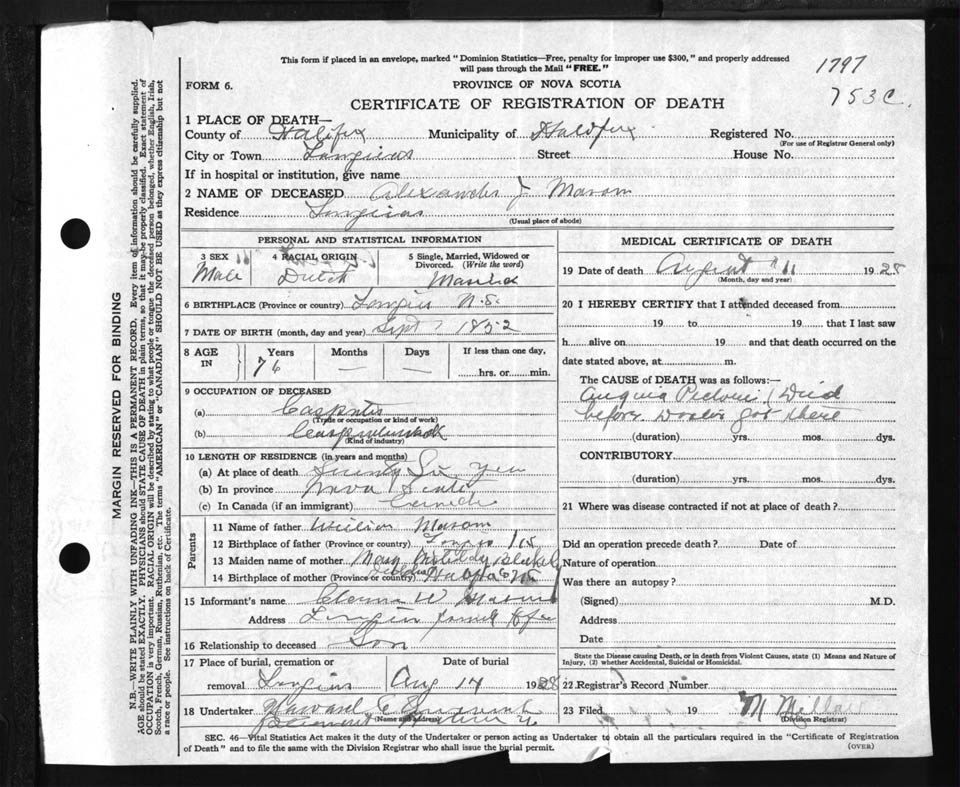 This form if placed in an envelope, marked "Dominion Statistics—Free, penalty for improper use $300," and properly addressed
will pass through the Mail "FREE."
1797
753C.
FORM 6.
PROVINCE OF NOVA SCOTIA
CERTIFICATE OF REGISTRATION OF DEATH
1 PLACE OF DEATH—
County of Halifax Municipality of Halifax Registered No.
(For use of Registrar General only)
City or Town Street House No.
If in hospital or institution, give name
2 NAME OF DECEASED Alexander J Mason
Residence
(Usual place of abode)
PERSONAL AND STATISTICAL INFORMATION
3 SEX 4 RACIAL ORIGIN 5 Single, Married, Widowed or Divorced. (Write the word)
Male Dutch Married
6 BIRTHPLACE (Province or country) N.S.
7 DATE OF BIRTH (month, day and year) Sept 1852
8 AGE IN Years Months Days If less than one day,
76 — — hrs. or min.
9 OCCUPATION OF DECEASED
(a) Carpenter
(Trade or occupation or kind of work)
(b)
(Kind of industry)
10 LENGTH OF RESIDENCE (in years and months)
(a) At place of death
(b) In province Nova Scotia
(c) In Canada (if an immigrant)
Parents
11 Name of father William Mason
12 Birthplace of father (Province or country)
13 Maiden name of mother Mary
14 Birthplace of mother (Province or country)
15 Informant's name W Mason
Address
16 Relationship to deceased Son
17 Place of burial, cremation or Date of burial
removal Aug 14 1928
18 Undertaker
(Name and address)
MEDICAL CERTIFICATE OF DEATH
19 Date of death August 11 1928
(Month, day and year)
20 I HEREBY CERTIFY that I attended deceased from
19 to 19 that I last saw
h alive on 19 and that death occurred on the
date stated above, at m.
The CAUSE of DEATH was as follows:—
Angina Pectoris Died
before Doctor got there
(duration) yrs. mos. dys.
CONTRIBUTORY
(duration) yrs. mos. dys.
21 Where was disease contracted if not at place of death?
Did an operation precede death? Date of
Nature of operation
Was there an autopsy?
(Signed) M.D.
Address
Date
State the Disease causing Death, or in death from Violent Causes, state (1) Means and Nature of
Injury, (2) whether Accidental, Suicidal or Homicidal.
22 Registrar's Record Number
23 Filed 19 M
(Division Registrar)
SEC. 46—Vital Statistics Act makes it the duty of the Undertaker or person acting as Undertaker to obtain all the particulars required in the "Certificate of Registration
of Death" and to file the same with the Division Registrar who shall issue the burial permit. (OVER)
MARGIN RESERVED FOR BINDING
N.B.—WRITE PLAINLY WITH UNFADING INK—THIS IS A PERMANENT RECORD. Every item of information should be carefully supplied.
AGE should be stated EXACTLY. PHYSICIANS should STATE CAUSE OF DEATH in plain terms, so that it may be properly classified. Exact statement of
OCCUPATION is very important. RACIAL ORIGIN will be described by stating to what people or tongue the deceased person belonged, whether English, Irish,
Scotch, French, German, Russian, Ruthenian, etc. The terms "AMERICAN" or "CANADIAN" SHOULD NOT BE USED as they express citizenship but not
a race or people. See instructions on back of Certificate.